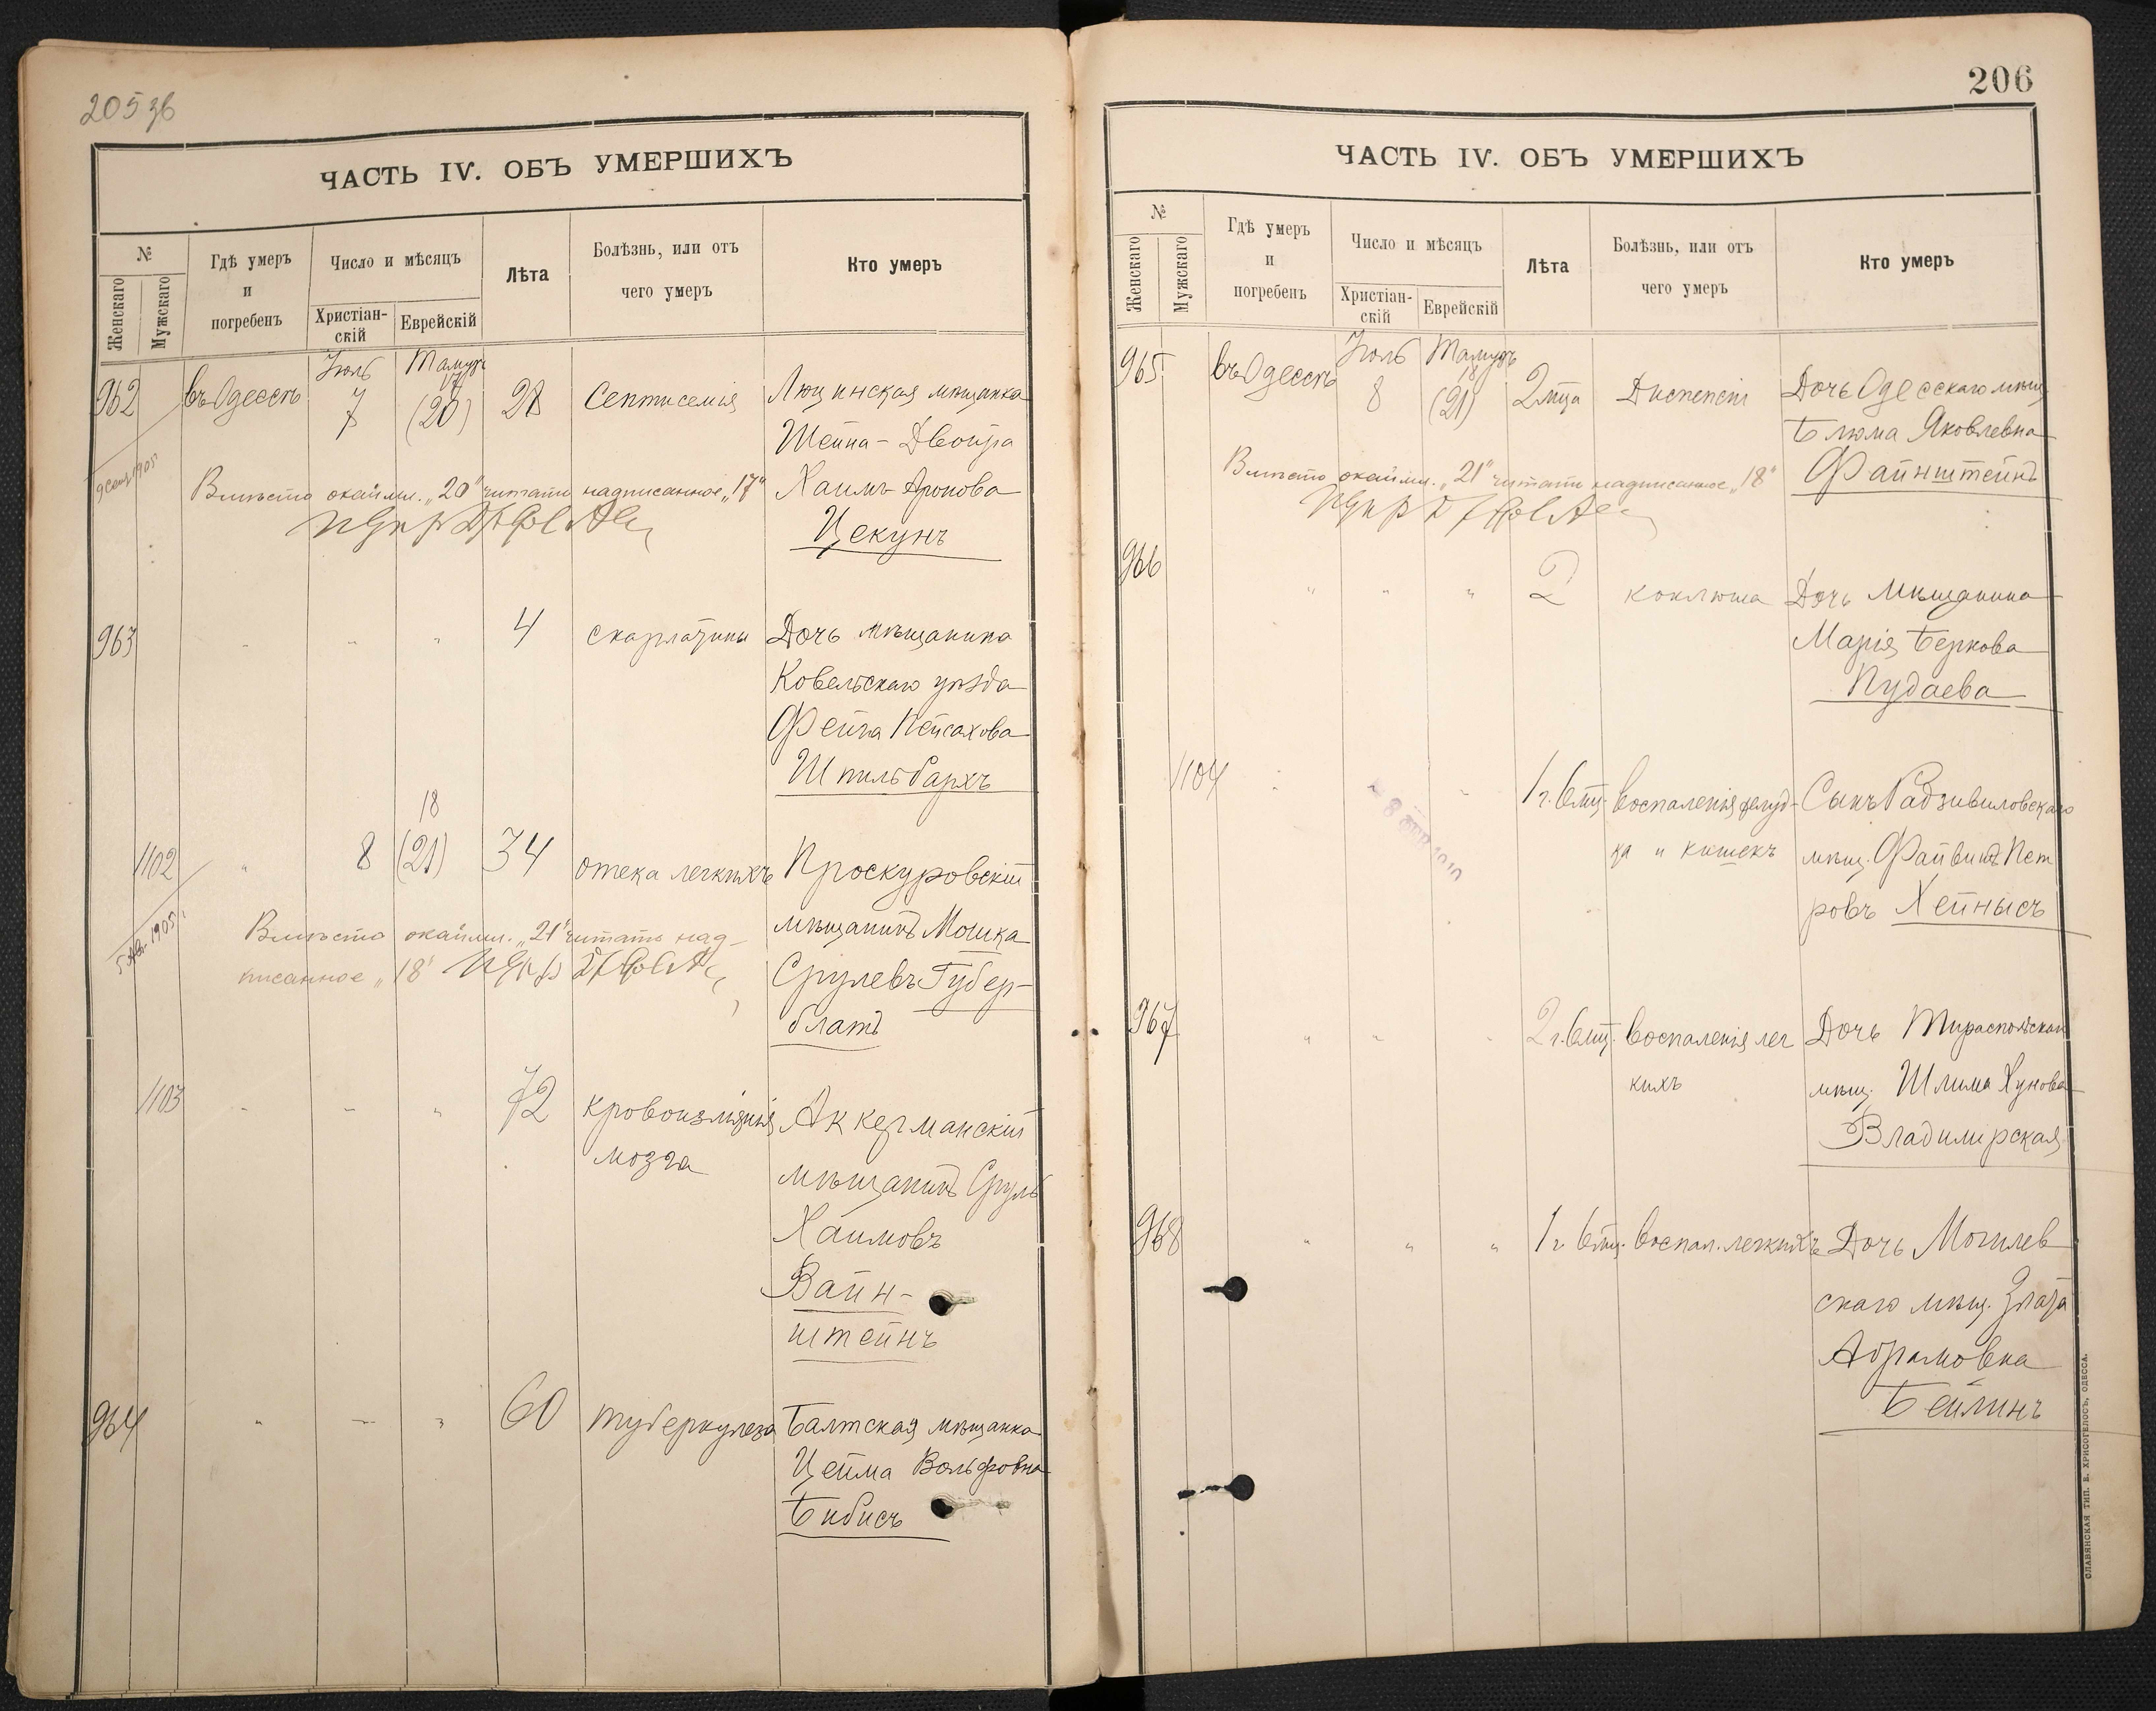 205 зв
ЧАСТЬ IV. ОБЪ УМЕРШИХЪ
№
Женскаго
Мужскаго
Гдѣ умеръ
и
погребенъ
Число и мѣсяцъ
Христіан-
скій
Еврейскій
Лѣта
Болѣзнь, или отъ
чего умеръ
Кто умеръ
Іюль Тамузъ
17
962 въ Одессѣ 7 (20) 28 Септисемія Люцинская мѣщанка
Шейна-Двойра
1905
Вмѣсто окаймл. „20" читать надписанное „17" Хаимъ-Аронова
Цекунъ
963 " " " 4 скарлатины Дочь мѣщанина
Ковельскаго уѣзда
Фейга Пейсахова
Шпильбархъ
18
1102 " 8 (21) 34 отека легкихъ Проскуровскій
5 Ав. 1905
Вмѣсто окаймл. „21" читать над- мѣщанинъ Мошка
писанное „18" Срулевъ Губер-
блатъ
1103 " " " 72 кровоизліянія Аккерманскій
мозга мѣщанинъ Сруль
Хаимовъ
Вайн-
штейнъ
964 " " " 60 туберкулеза Балтская мѣщанка
Цейма Вольфовна
Бибисъ
206
ЧАСТЬ IV. ОБЪ УМЕРШИХЪ
№
Женскаго
Мужскаго
Гдѣ умеръ
и
погребенъ
Число и мѣсяцъ
Христіан-
скій
Еврейскій
Лѣта
Болѣзнь, или отъ
чего умеръ
Кто умеръ
Іюль Тамузъ
18
965 въ Одессѣ 8 (21) 2 мца Диспепсіи Дочь Одесскаго мѣщ.
Блюма Яковлевна
Вмѣсто окаймл. „21" читать надписанное „18" Файнштейнъ
966 " " " 2 коклюша Дочь мѣщанина
Марія Беркова
Пудаева
1104 " " 1 г. 6 мц. воспаленія желуд- Сынъ Радзивиловскаго
ка и кишекъ мѣщ. Файвишъ Пет
ровъ Хейнысъ
967 " " " 2 г. 6 мц. воспаленія лег Дочь Тираспольскаго
кихъ мѣщ. Шлима Хунова
Владимирская
968 " " " 1 г. 6 мц. воспал. легкихъ Дочь Могилев
скаго мѣщ. Злата
Абрамовна
Бейлинъ
СЛАВЯНСКАЯ ТИП. В. ХРИСОГЕЛОСЪ, ОДЕССА.